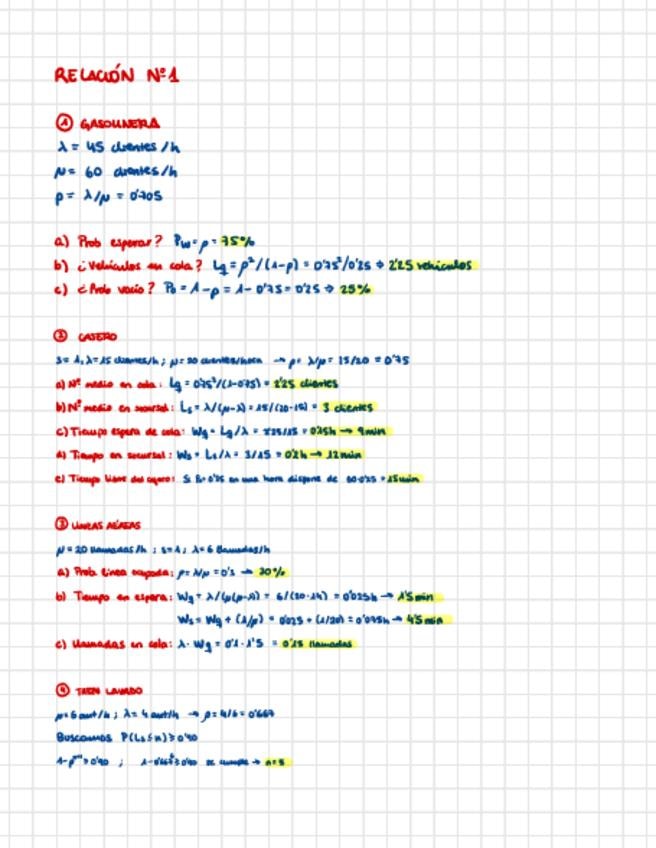 RELACIÓN Nº1
① GASOLINERA
λ = 45 clientes /h
μ = 60 clientes/h
ρ = λ/μ = 0'705
a) Prob esperar? Pw = ρ = 75%
b) ¿Vehículos en cola? Lq = ρ²/(1-ρ) = 0'75²/0'25 → 2'25 vehículos
c) ¿Prob vacío? P₀ = 1-ρ = 1-0'75 = 0'25 → 25%
② CAJERO
S = 1, λ = 15 clientes/h ; μ = 20 clientes/hora → ρ = λ/μ = 15/20 = 0'75
a) Nº medio en cola: Lq = 0'75²/(1-0'75) = 2'25 clientes
b) Nº medio en sucursal: Ls = λ/(μ-λ) = 15/(20-15) = 3 clientes
c) Tiempo espera de cola: Wq = Lq/λ = 2'25/15 = 0'15h → 9min
d) Tiempo en sucursal: Ws = Ls/λ = 3/15 = 0'2h → 12min
e) Tiempo libre del cajero: Si P₀ = 0'25 en una hora dispone de 60·0'25 = 15min
③ LÍNEAS AÉREAS
μ = 20 llamadas/h ; s = 1 ; λ = 6 llamadas/h
a) Prob. línea ocupada: ρ = λ/μ = 0'3 → 30%
b) Tiempo en espera: Wq = λ/(μ(μ-λ)) = 6/(20·14) = 0'025h → 1'5min
Ws = Wq + (1/μ) = 0'025 + (1/20) = 0'075h → 4'5min
c) Llamadas en cola: λ·Wq = 0'1·1'5 = 0'15 llamadas
④ TREN LAVADO
μ = 6 aut/h ; λ = 4 aut/h → ρ = 4/6 = 0'667
Buscamos P(Ls≤n) ≥ 0'90
se cumple → n = 5